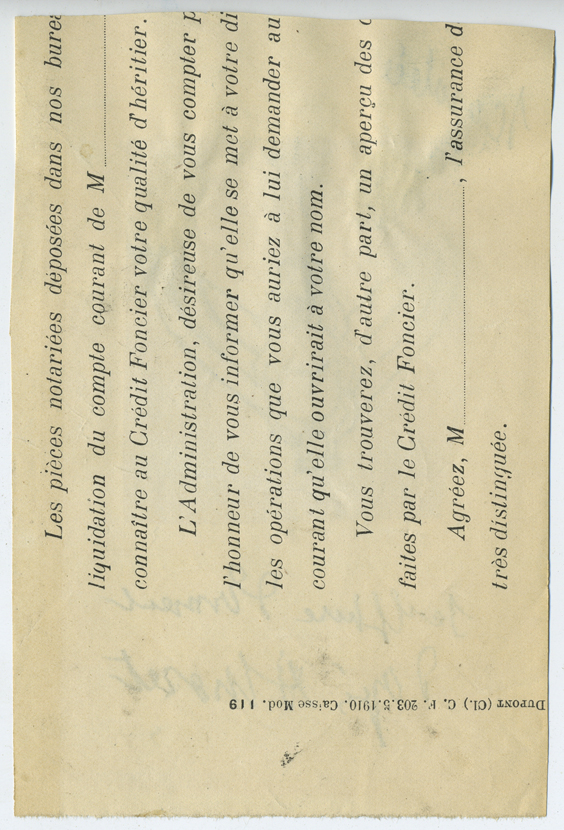 Les pièces notariées déposées dans nos burea
liquidation du compte courant de M
connaître au Crédit Foncier votre qualité d'héritier.
L'Administration, désireuse de vous compter p
l'honneur de vous informer qu'elle se met à votre di
les opérations que vous auriez à lui demander au
courant qu'elle ouvrirait à votre nom.
Vous trouverez, d'autre part, un aperçu des
faites par le Crédit Foncier.
Agréez, M, l'assurance d
très distinguée.
DUPONT (Cl.) C. F. 203.5.1910. Caisse Mod. 119